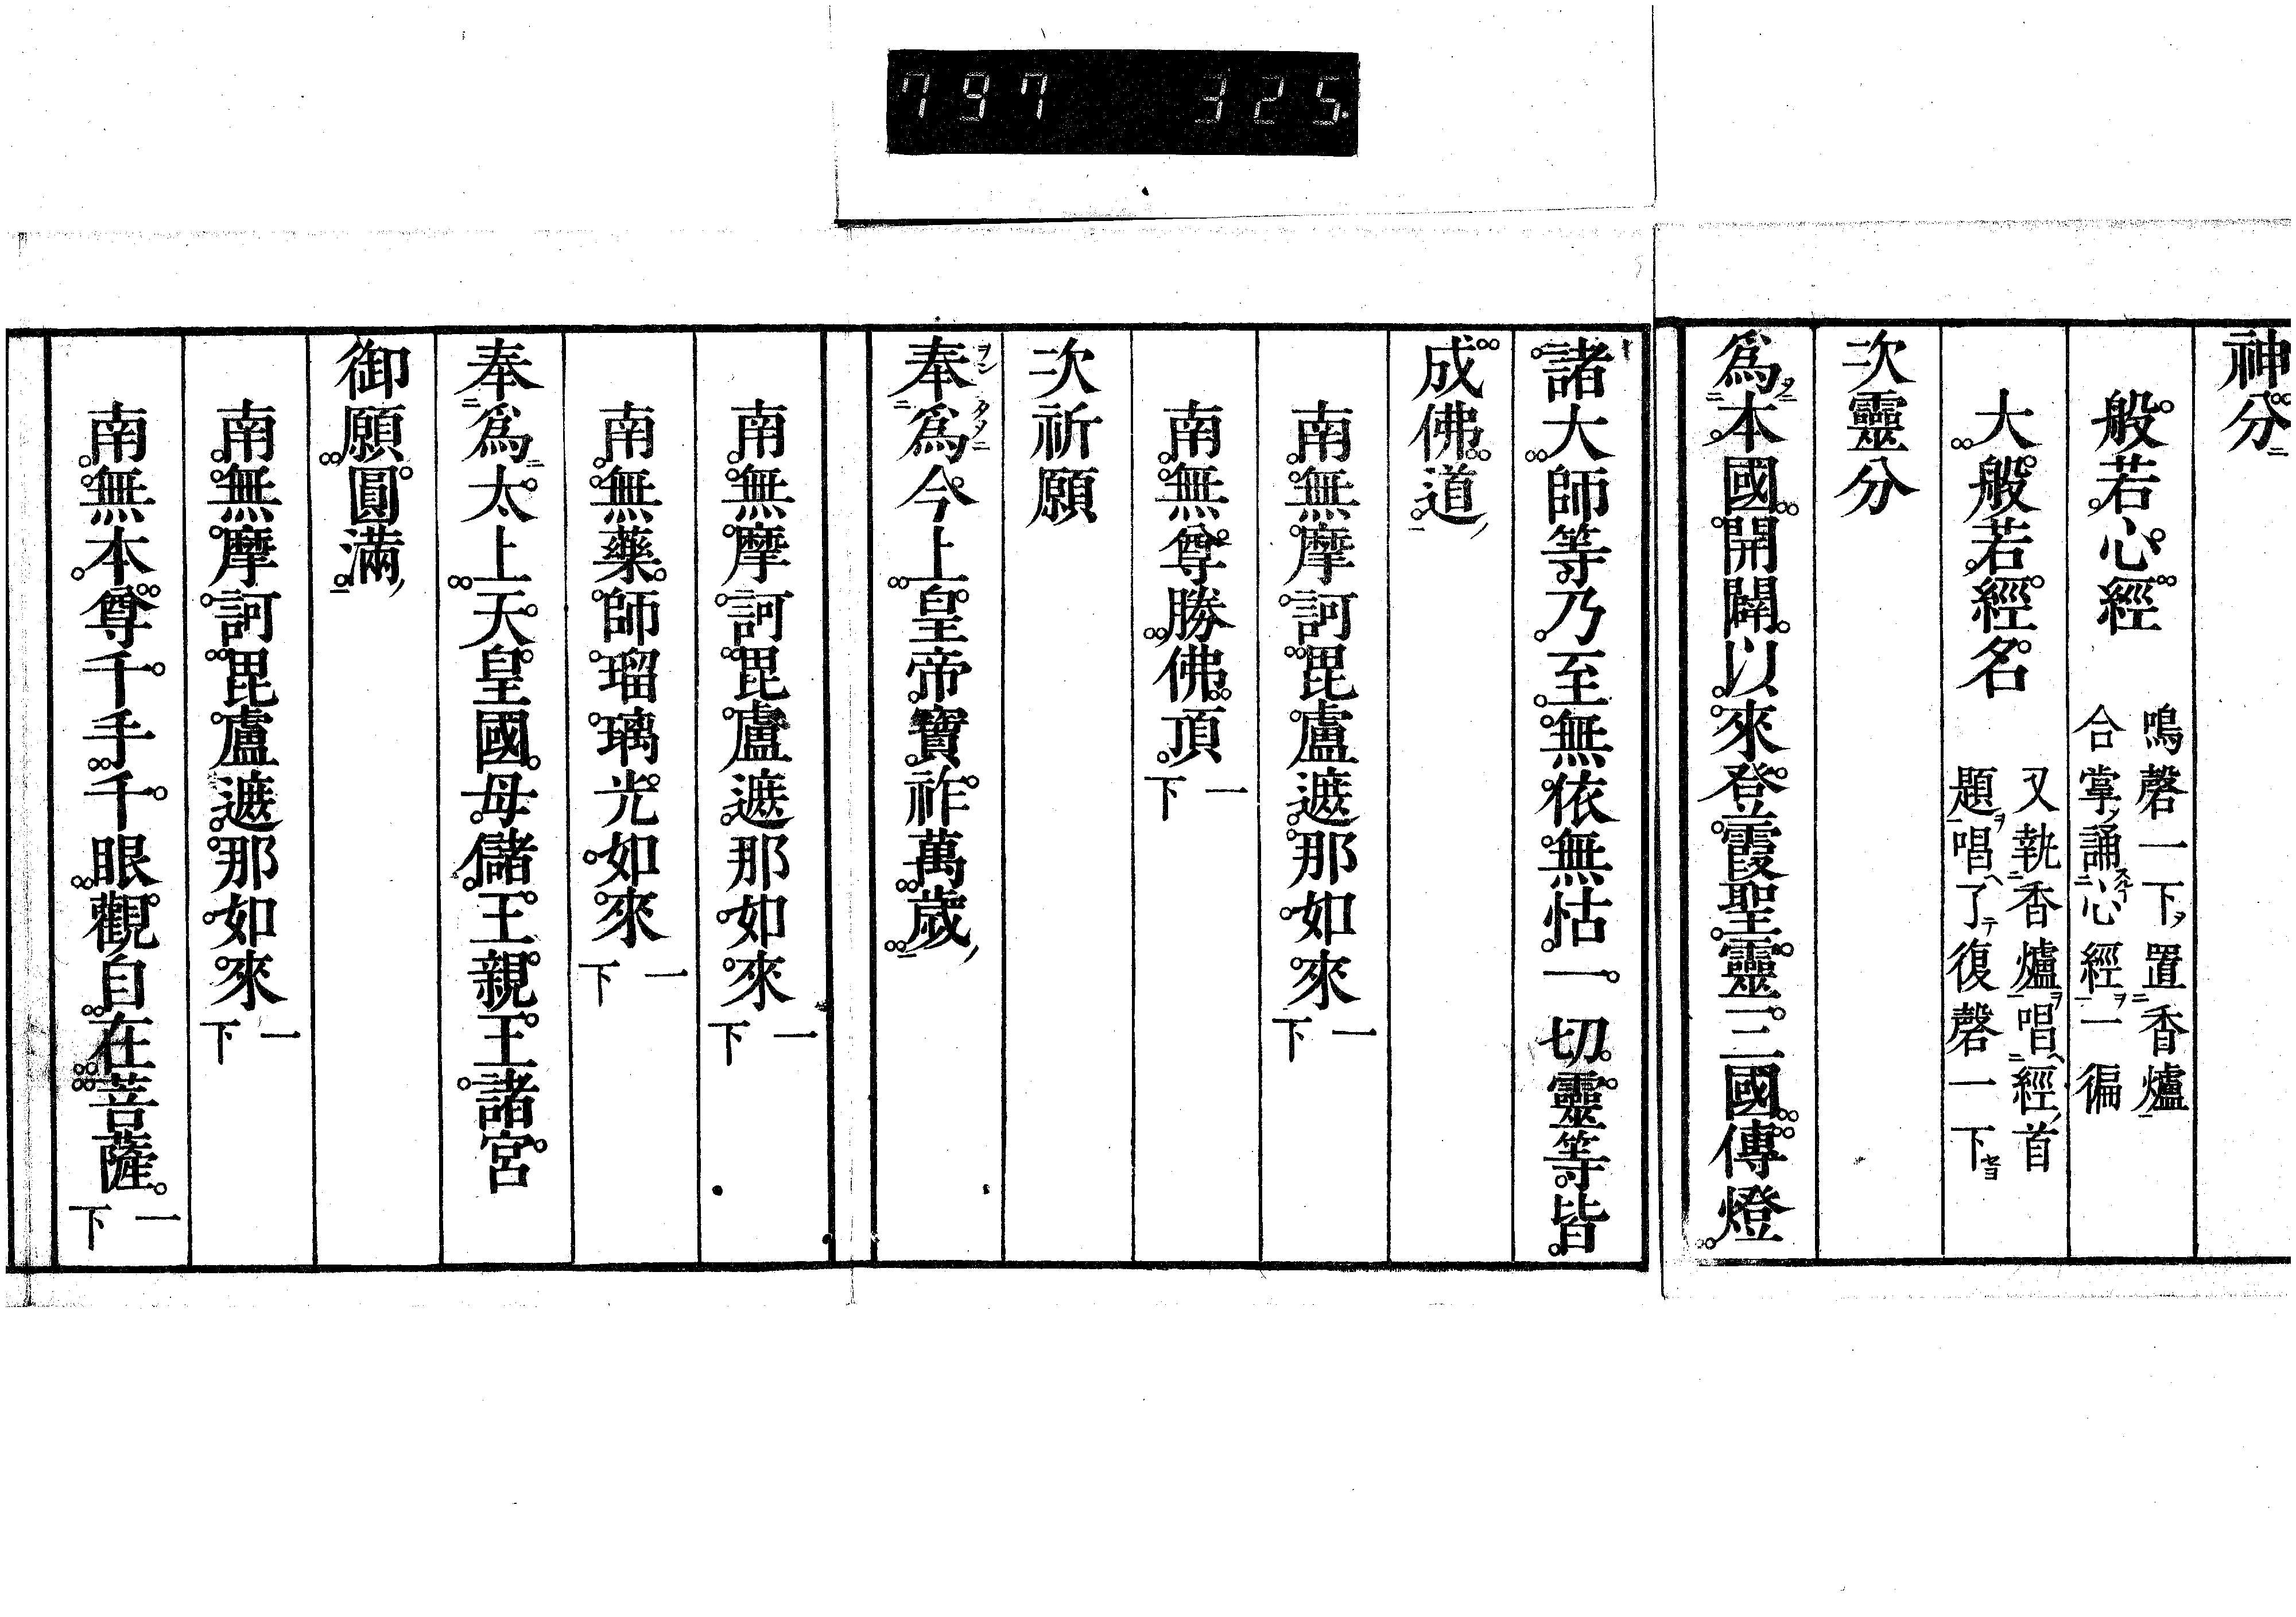 797 325.
神分ニ
般若心經 鳴磬一下ヲ置香爐
合掌誦心經ヲ一徧
大般若經名 又執香爐ヲ唱ヘ經首
題ヲ唱ヘ了テ復磬一下
次靈分
爲本國開闢以來登霞聖靈三國傳燈
諸大師等乃至無依無怙一切靈等皆
成佛道
南無摩訶毘盧遮那如來 一下
南無尊勝佛頂 一下
次祈願
奉爲今上皇帝寶祚萬歲
南無摩訶毘盧遮那如來 一下
南無藥師瑠璃光如來 一下
奉爲太上天皇國母儲王親王諸宮
御願圓滿
南無摩訶毘盧遮那如來 一下
南無本尊千手千眼觀自在菩薩 一下